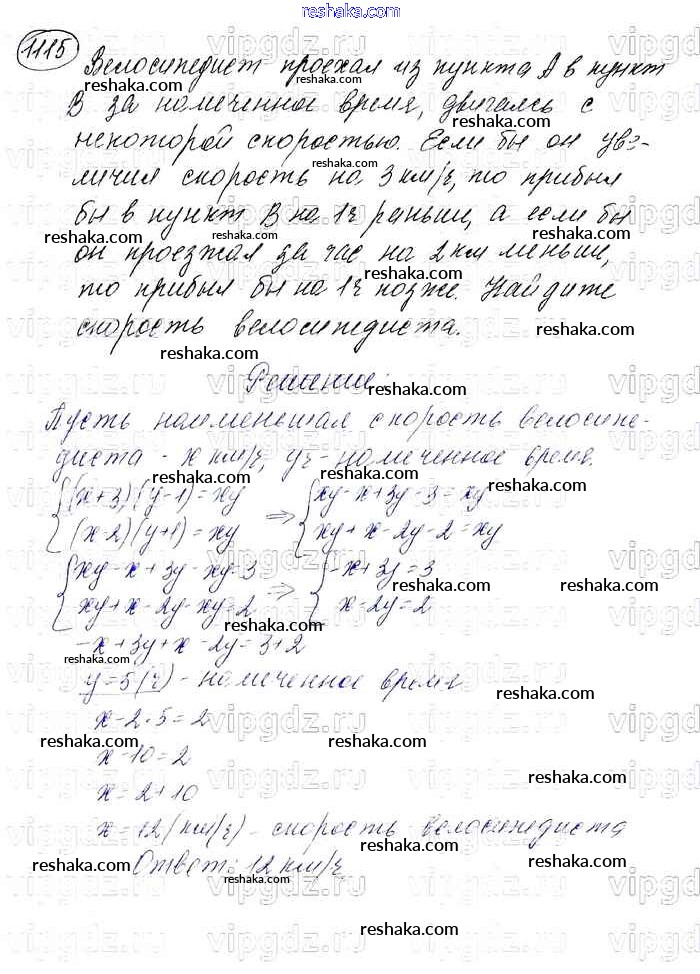 reshaka.com
1115
Велосипедист проехал из пункта А в пункт
В за намеченное время, двигаясь с
некоторой скоростью. Если бы он уве-
личил скорость на 3 км/ч, то прибыл
бы в пункт В на 1ч раньше, а если бы
он проезжал за час на 2 км меньше,
то прибыл бы на 1ч позже. Найдите
скорость велосипедиста.
Решение:
Пусть скорость велосипе-
диста - x км/ч, yч - намеченное время.
{(x+3)(y-1)=xy => {xy-x+3y-3=xy
{(x-2)(y+1)=xy {xy+x-2y-2=xy
{xy-x+3y-xy=3 => {-x+3y=3
{xy+x-2y-xy=2 {x-2y=2
-x+3y+x-2y=3+2
y=5(ч) - намеченное время
x-2·5=2
x-10=2
x=2+10
x=12(км/ч) - скорость велосипедиста
Ответ: 12 км/ч
reshaka.com
vipgdz.ru